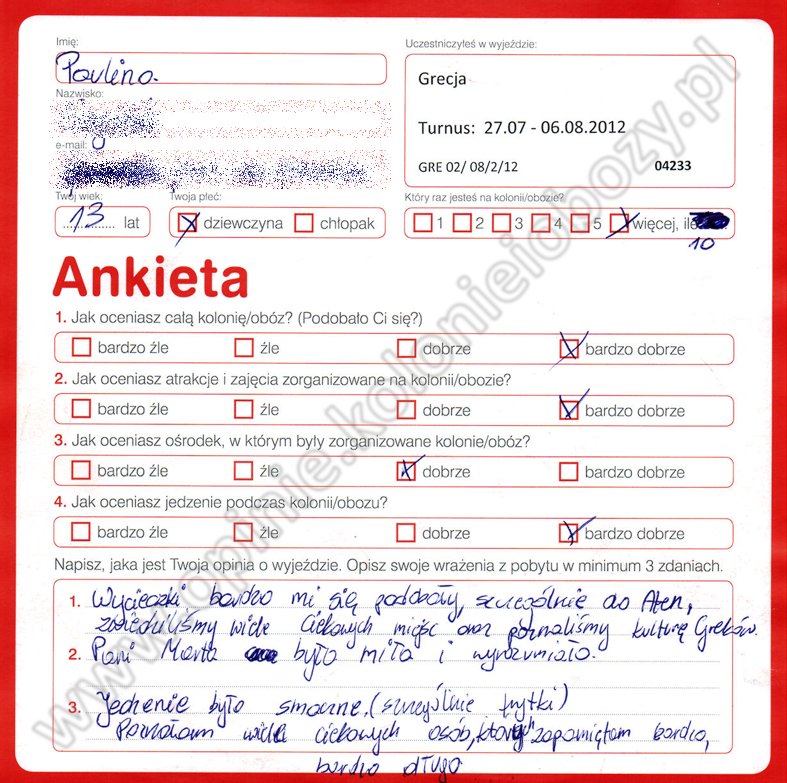 Imię:
Paulina
Nazwisko:
e-mail:
Twój wiek:
13 lat
Twoja płeć:
dziewczyna chłopak
Uczestniczyłeś w wyjeździe:
Grecja
Turnus: 27.07 - 06.08.2012
GRE 02/ 08/2/12 04233
Który raz jesteś na kolonii/obozie?
1 2 3 4 5 więcej, ile
10
Ankieta
1. Jak oceniasz całą kolonię/obóz? (Podobało Ci się?)
bardzo źle źle dobrze bardzo dobrze
2. Jak oceniasz atrakcje i zajęcia zorganizowane na kolonii/obozie?
bardzo źle źle dobrze bardzo dobrze
3. Jak oceniasz ośrodek, w którym były zorganizowane kolonie/obóz?
bardzo źle źle dobrze bardzo dobrze
4. Jak oceniasz jedzenie podczas kolonii/obozu?
bardzo źle źle dobrze bardzo dobrze
Napisz, jaka jest Twoja opinia o wyjeździe. Opisz swoje wrażenia z pobytu w minimum 3 zdaniach.
1. Wycieczki bardzo mi się podobały, szczególnie do Aten,
zwiedziliśmy wiele ciekawych miejsc oraz poznaliśmy kulturę Greków.
2. Pani Marta była miła i wyrozumiała.
3. Jedzenie było smaczne. (szczególnie frytki)
Poznałam wiele ciekawych osób, które zapamiętam bardzo,
bardzo długo
www.opinie.kolonieiobozy.pl